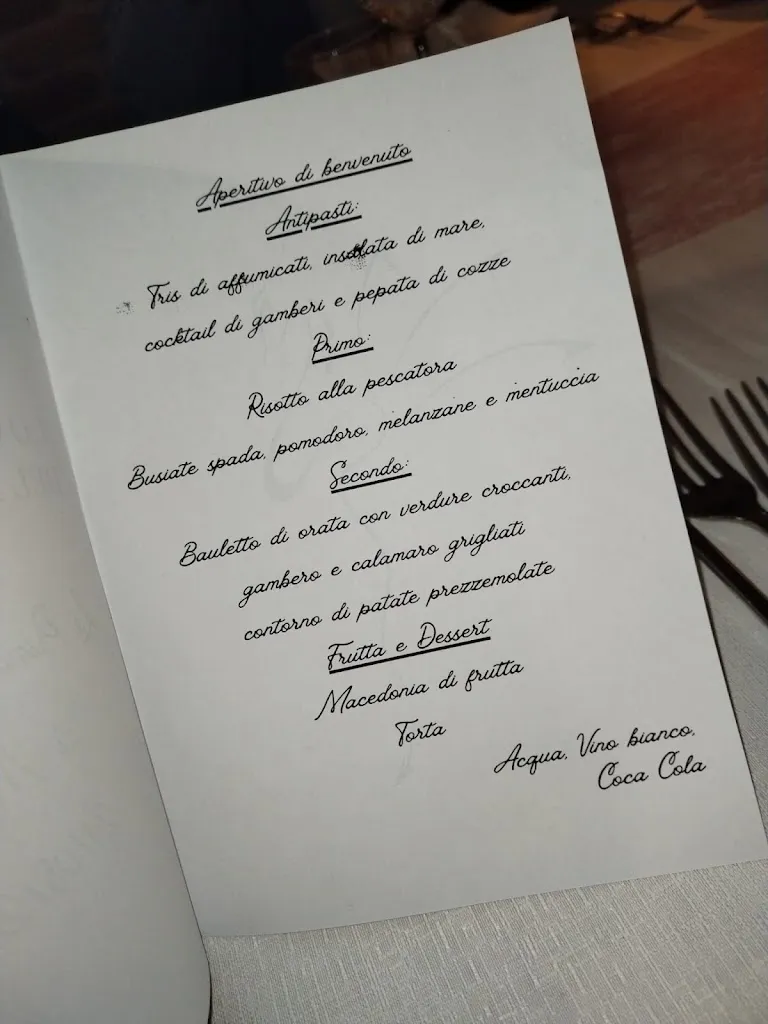 Aperitivo di benvenuto
Antipasti:
Tris di affumicati, insalata di mare,
cocktail di gamberi e pepata di cozze
Primo:
Risotto alla pescatora
Busiate spada, pomodoro, melanzane e mentuccia
Secondo:
Bauletto di orata con verdure croccanti,
gambero e calamaro grigliati
contorno di patate prezzemolate
Frutta e Dessert
Macedonia di frutta
Torta
Acqua, Vino bianco,
Coca Cola